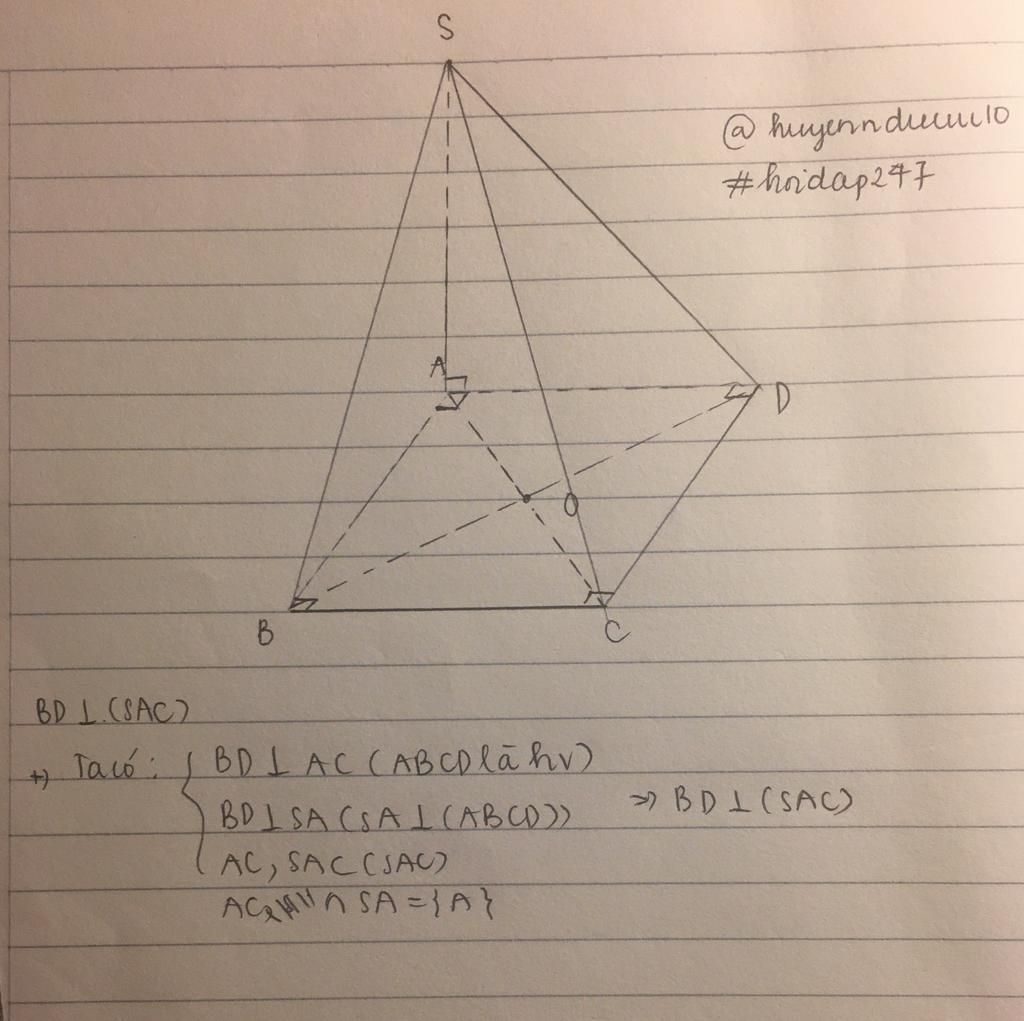 S
@ huyennduuuu10
#hoidap247
A
D
O
B
C
BD ⊥ (SAC)
+) Ta có: { BD ⊥ AC (ABCD là hv)
BD ⊥ SA (SA ⊥ (ABCD)) => BD ⊥ (SAC)
AC, SA ⊂ (SAC)
AC ∩ SA = {A}